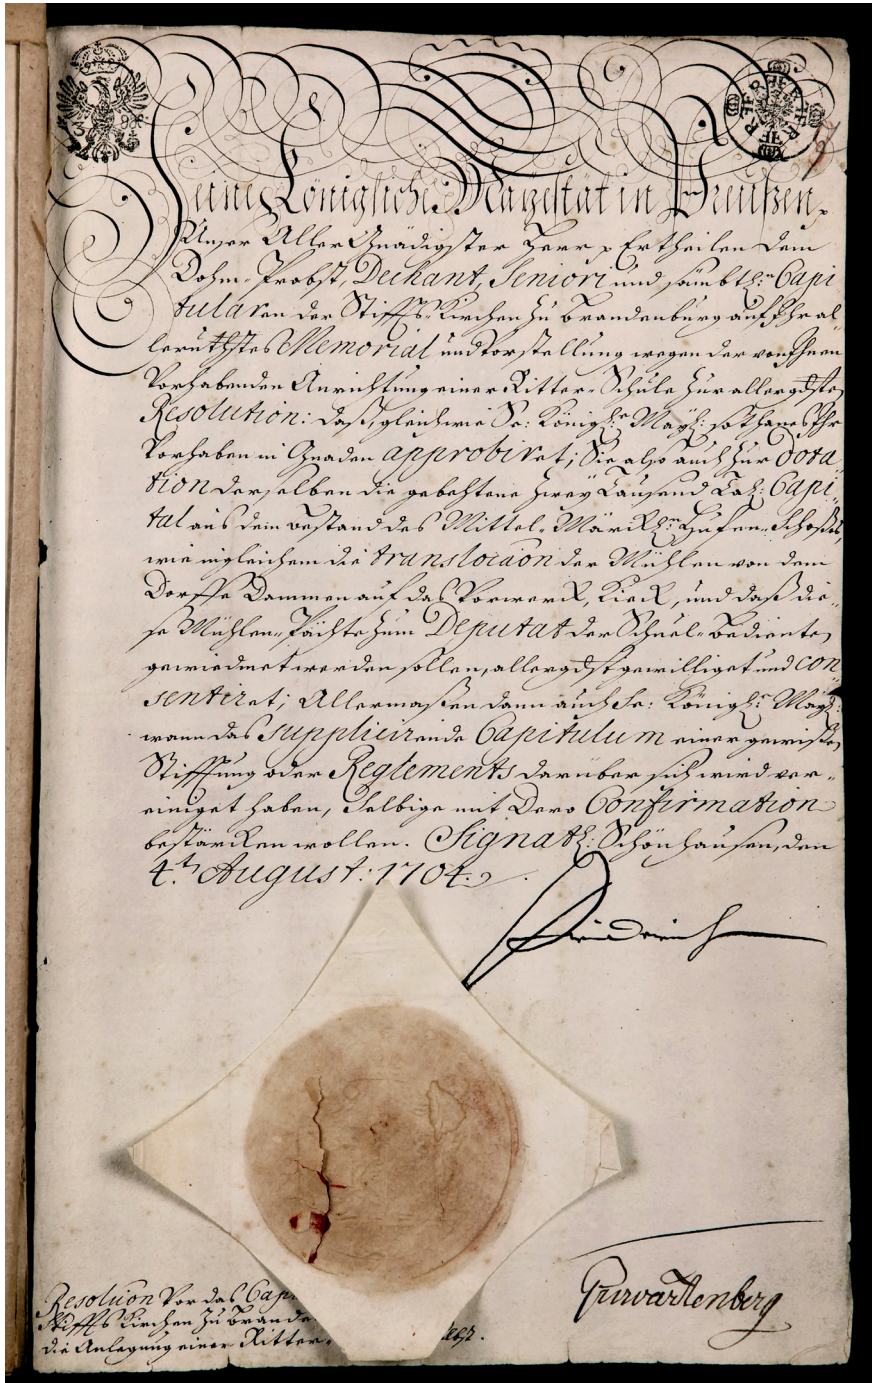 Seine Königliche Mayestät in Preußen,
Unser AllerGnädigster Herr p Ertheilen dem
Dohm-Probst, Dechant, Seniori und sämbtl:n Capi
tularen der Stiffts-Kirchen zu Brandenburg auff Ihr al
lerunthstes Memorial und Vorstellung wegen der von Ihnen
Vorhabenden Anrichtung einer Ritter-Schule zur allergdsten
Resolution: Daß, gleichwie Se: Königl:e Mayt: sothanes Ihr
Vorhaben in Gnaden approbiret; Sie also auch zur Dota
tion derselben die gebethene Zwey Tausend Talr: Capi-
tal aus dem Bestand des Mittel-Märckl:n Hufen-Schoßes,
wie ingleichem die translocaon der Mühlen von dem
Dorffe Dammen auf das Vorwerck, Kieck, und daß die-
se Mühlen-Pächte zum Deputat der Schuel-Bediente
gewiedmet werden sollen, allergdst gewilliget und con
sentiret; Allermaßen dann auch Se: Königl:e Mayt:
wann das supplicirende Capitulum einer gewißen
Stifftung oder Reglements darüber sich wird ver-
einiget haben, Selbige mit Dero Confirmation
bestärcken wollen. Signat: Schönhausen, den
4.t August: 1704.
Friderich
Resolution Vor das Cap
Stiffts Kirchen zu Brande
die Anlegung einer Ritter-
Gr v Wartenberg